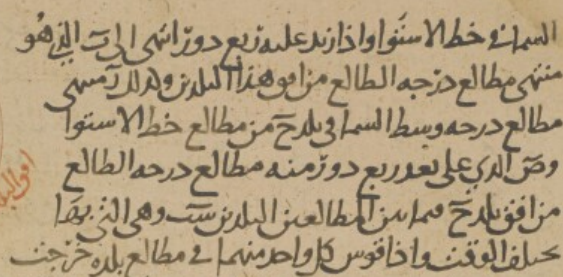 السما في خط الاستوا واذا زيد عليه ربع دور انتهى الى ت الذي هو
منتهى مطالع درجه الطالع من افق هذا البلدين ولذلك ر منتهى
مطالع درجه وسط السما في بلد ح من مطالع خط الاستوا
وص الذي على بعد ربع دور منه مطالع درجه الطالع
من افق بلد ح فما بين المطالعين البلدين ست وهي التي بها
يختلف الوقت واذا قوس كل واحد منهما في مطالع بلده خرجت
افق